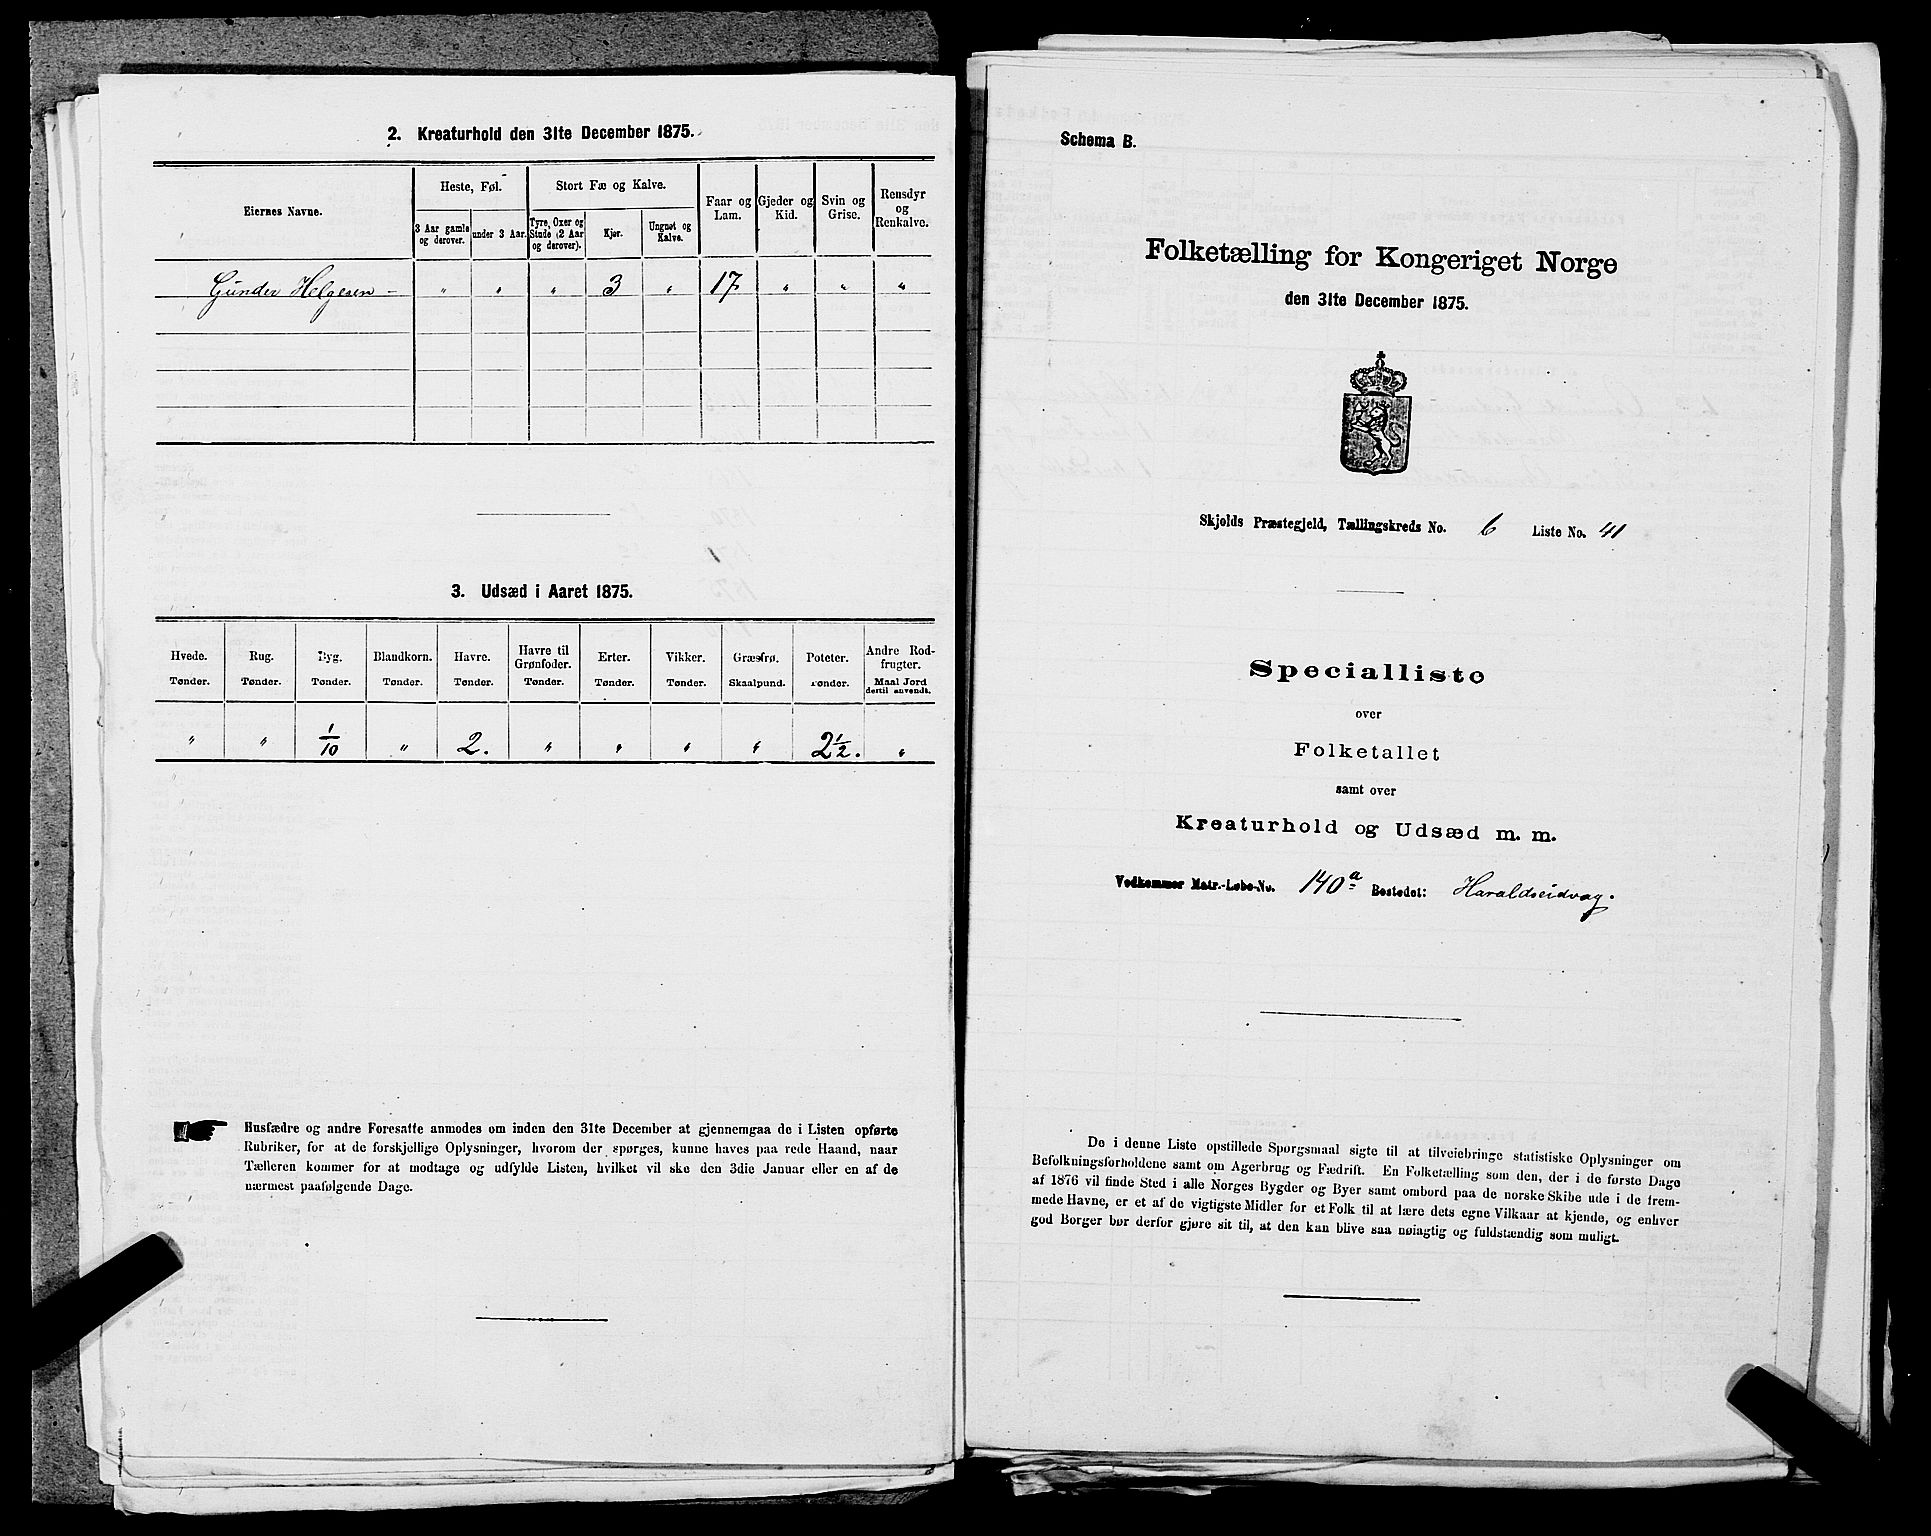 2. Kreaturhold den 31te December 1875.
Eiernes Navne.
Heste, Føl.
Stort Fæ og Kalve.
Faar og Lam.
Gjeder og Kid.
Svin og Grise.
Rensdyr og Renkalve.
3 Aar gamle og derover.
under 3 Aar.
Tyre, Oxer og Stude (2 Aar og derover).
Kjør.
Ungnøt og Kalve.
Gunder Helgesen – " " " 3 " 17 " " "
3. Udsæd i Aaret 1875.
Hvede. Rug. Byg. Blandkorn. Havre. Havre til Grønfoder. Erter. Vikker. Græsfrø. Poteter. Andre Rodfrugter.
Tønder. Tønder. Tønder. Tønder. Tønder. Tønder. Tønder. Tønder. Skaalpund. Tønder. Maal Jord dertil anvendt.
" " 1/10 " 2. " " " " 2 1/2. "
Husfædre og andre Foresatte anmodes om inden den 31te December at gjennemgaa de i Listen opførte
Rubriker, for at de forskjellige Oplysninger, hvorom der spørges, kunne haves paa rede Haand, naar
Tælleren kommer for at modtage og udfylde Listen, hvilket vil ske den 3die Januar eller en af de
nærmest paafølgende Dage.
Schema B.
Folketælling for Kongeriget Norge
den 31te December 1875.
Skjolds Præstegjeld, Tællingskreds No. 6 Liste No. 41
Specialliste
over
Folketallet
samt over
Kreaturhold og Udsæd m. m.
Vedkommer Matr.-Løbe-No. 140a Bostedet: Haraldseidvag.
De i denne Liste opstillede Spørgsmaal sigte til at tilveiebringe statistiske Oplysninger om
Befolkningsforholdene samt om Agerbrug og Fædrift. En Folketælling som den, der i de første Dage
af 1876 vil finde Sted i alle Norges Bygder og Byer samt ombord paa de norske Skibe ude i de frem-
mede Havne, er et af de vigtigste Midler for et Folk til at lære dets egne Vilkaar at kjende, og enhver
god Borger bør derfor gjøre sit til, at den kan blive saa nøiagtig og fuldstændig som muligt.